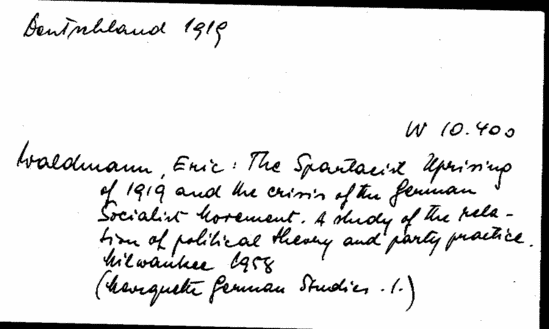 Deutschland 1919
W 10.400
Waldmann, Eric: The Spartacist Uprising
of 1919 and the crisis of the German
Socialist Movement. A study of the rela-
tion of political theory and party practice.
Milwaukee 1958
(Marquette German Studies. 1.)